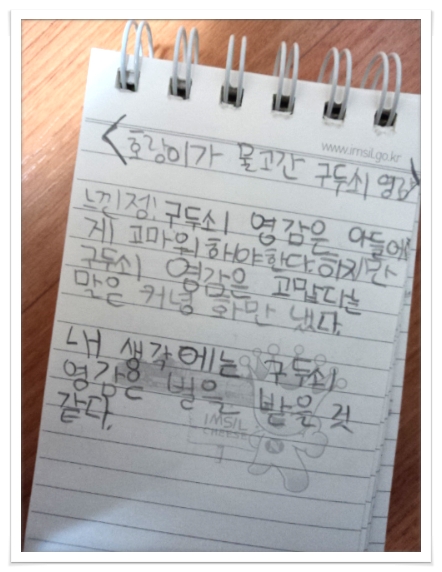 www.imsil.go.kr
<호랑이가 물고간 구두쇠 영감>
느낀점: 구두쇠 영감은 아들에
게 고마워 해야한다. 하지만
구두쇠 영감은 고맙다는
말은 커녕 화만 냈다.
내 생각에는 구두쇠
영감은 벌을 받은 것
같다.
IMSIL
CHEESE